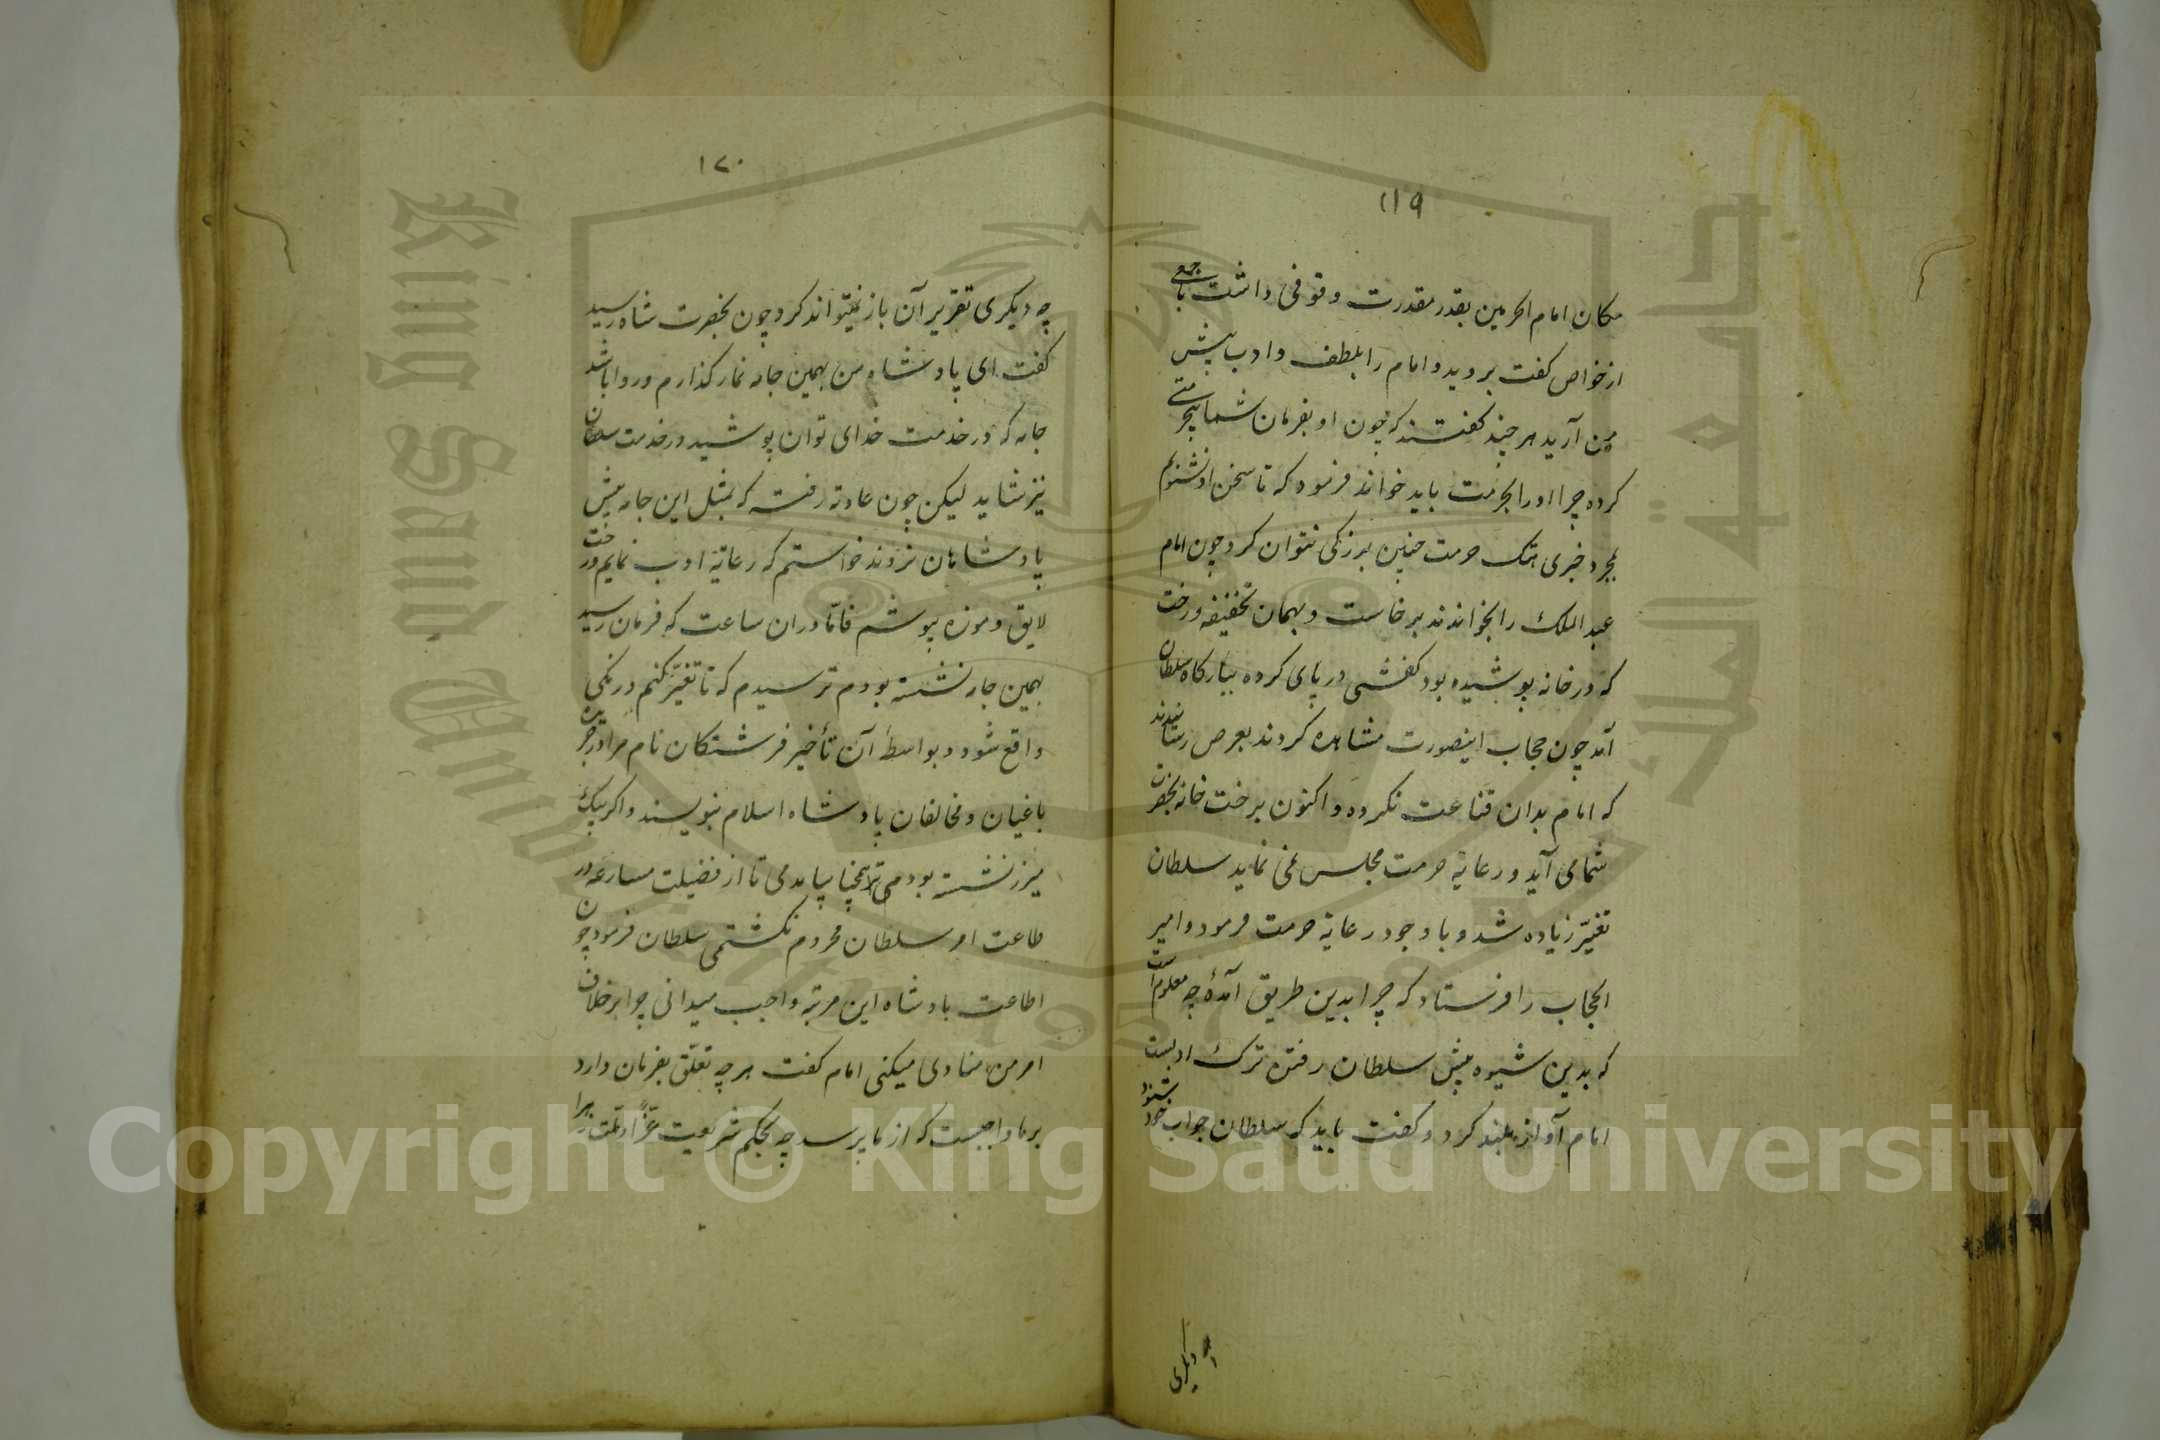 ١١٩
مکان امام الحرمین بقدر مقدرت وقوفی داشت با جمعی
از خواص کفت بروید و امام را بلطف و ادب پیش
من آرید هر چند کفتند که چون او بفرمان شما بیحرمتی
کرده چرا او را بحرمت باید خواند فرمود که تا سخن او نشنویم
بمجرد خبری هتک حرمت چنین بزرکی نتوان کرد چون امام
عبد الملک را بخواندند برخاست و بهمان تخفیفه و رخت
که در خانه پوشیده بود کفشی در پای کرده ببارکاه سلطان
آمد چون حجاب اینصورت مشاهده کردند بعرض رسانیدند
که امام بدان قناعت نکرده و اکنون برخت خانه بحضرت
شما می آید و رعایة حرمت مجلس نمی نماید سلطان
تغیّر زیاده شد و با وجود رعایة حرمت فرمود و امیر
الحجاب را فرستاد که چرا بدین طریق آمدهٔ چه معلوم است
که بدین شیوه پیش سلطان رفتن ترک ادبست
امام آواز بلند کرد و کفت باید که سلطان جواب خود شنود
چه دیکری
١٧٠
چه دیکری تقریر آن باز نمیتواند کرد چون بحضرت شاه رسید
کفت ای پادشاه من بهمین جامه نماز کذارم و روا باشد
جامه که در خدمت خدای توان پوشید در خدمت سلطان
نیز شاید لیکن چون عادة رفته که بمثل این جامه پیش
پادشاهان نروند خواستم که رعایة ادب نمایم و رخت
لایق و موزه بپوشم فاما در ان ساعت که فرمان رسید
بهمین جامه نشسته بودم ترسیدم که تا تغیّر کنم درنکی
واقع شود و بواسطهٔ آن تأخیر فرشتکان نام مرا در جریدهٔ
باغیان و مخالفان پادشاه اسلام بنویسند و اکر بیک
میزر نشسته بودمی همچنان بیامدمی تا از فضیلت مسارعه در
طاعت امر سلطان محروم نکشتمی سلطان فرمود چون
اطاعت پادشاه این مرتبه واجب میدانی چرا بر خلاف
امر من منادی میکنی امام کفت هر چه تعلّق بفرمان دارد
بر ما واجبست که از ما پرسد چه بحکم شریعت غرّا و ملت زهرا
Copyright © King Saud University
King Saud University
جامعة الملك سعود
1957